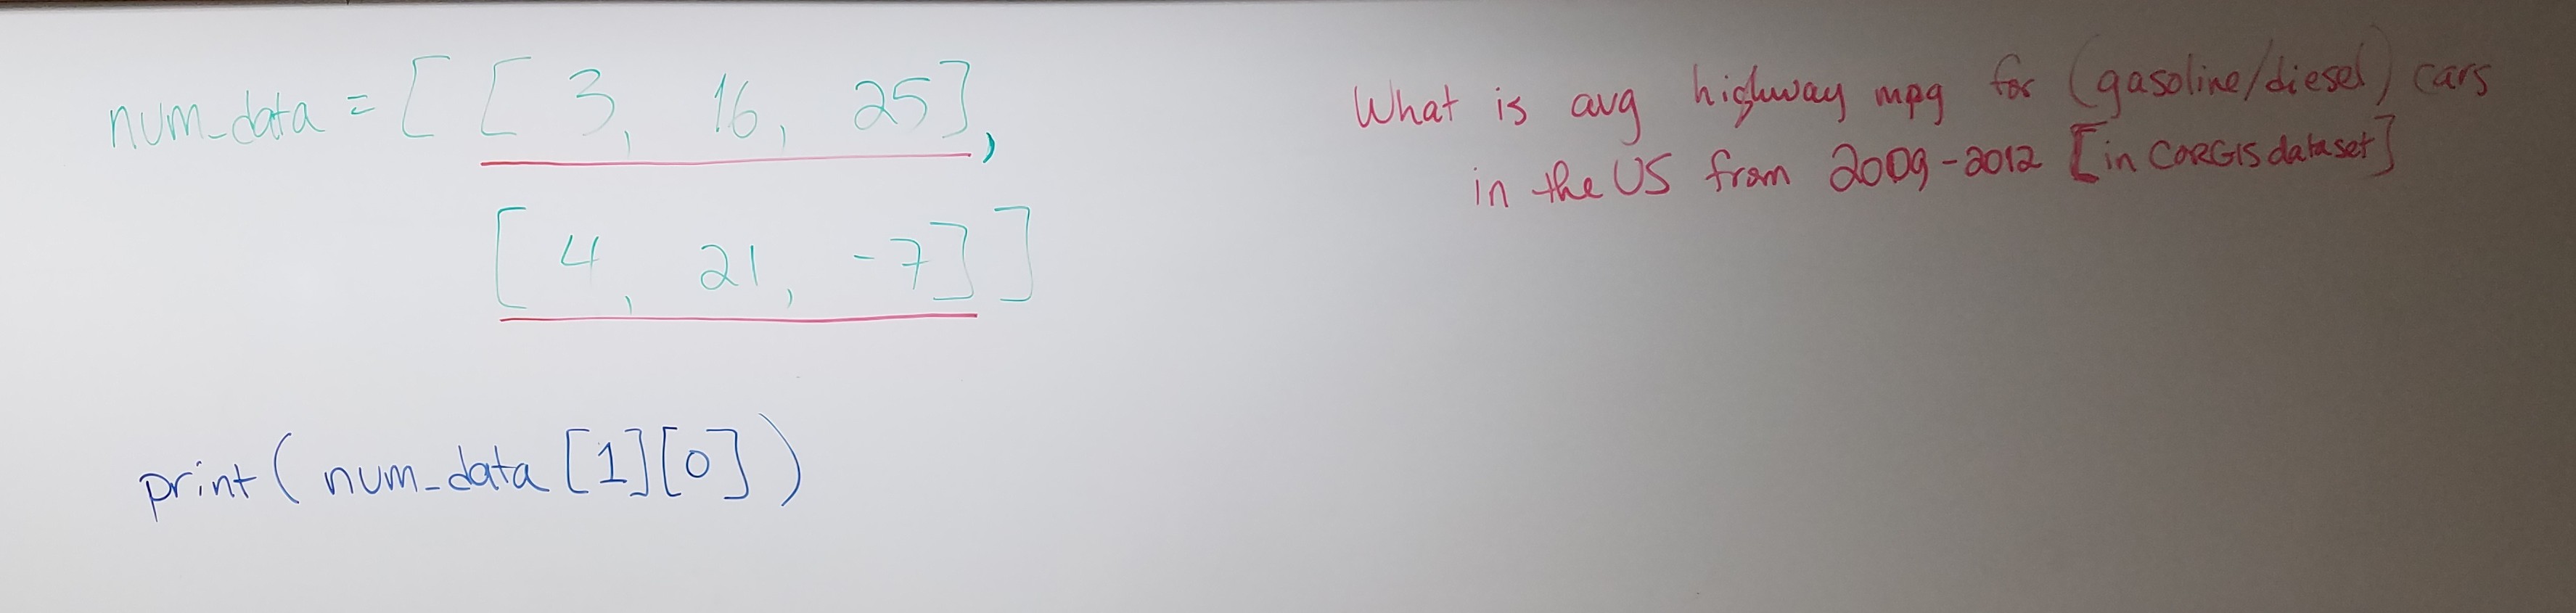 num_data = [ [ 3, 16, 25],
[ 4, 21, -7] ]
print( num_data [1][0] )
What is avg highway mpg for (gasoline/diesel) cars
in the US from 2009-2012 [in CORGIS dataset]